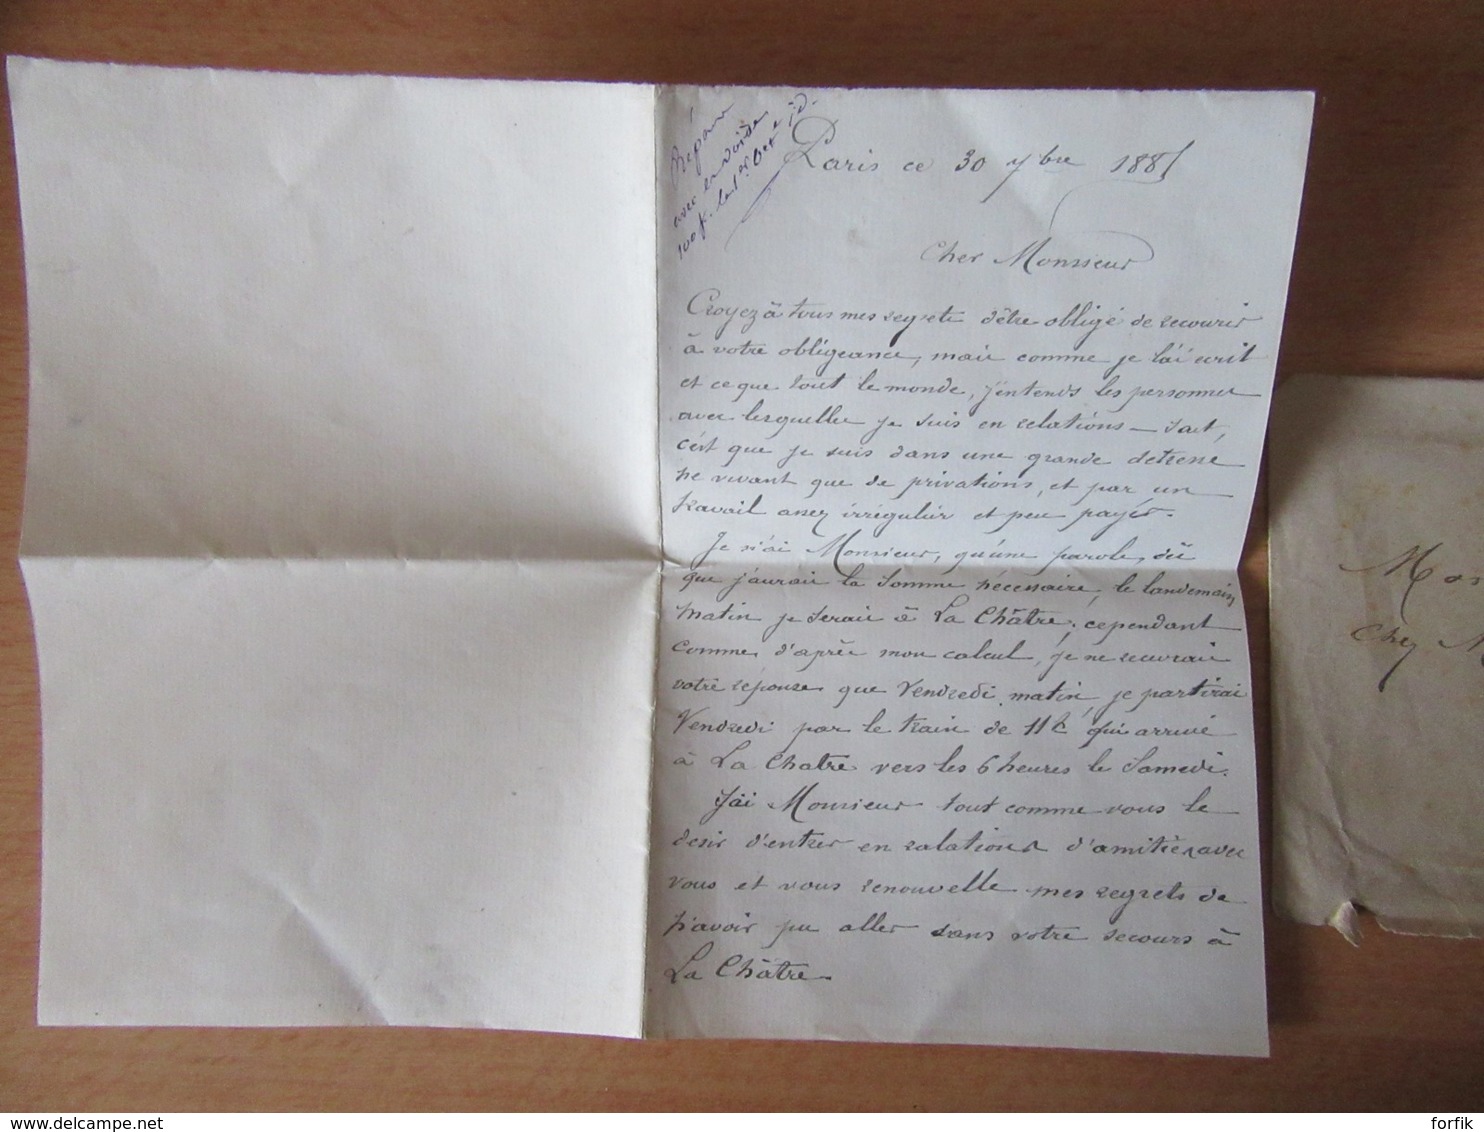 Répondu
avec envoi de
100f. le 1er 8bre
Paris ce 30 7bre 1881
Cher Monsieur
Croyez à tous mes regrets d'être obligé de recourir
à votre obligeance, mais comme je l'ai écrit
et ce que tout le monde, j'entends les personnes
avec lesquelles je suis en relations – sait,
c'est que je suis dans une grande detresse
ne vivant que de privations, et par un
travail assez irrégulier et peu payés.
Je n'ai Monsieur, qu'une parole, dès
que j'aurais la somme nécessaire, le landemain
matin je serais à La Châtre, cependant
comme, d'après mon calcul, je ne recevrais
votre réponse que Vendredi matin, je partirai
Vendredi par le train de 11h qui arrive
à La Chatre vers les 6 heures le Samedi.
J'ai Monsieur tout comme vous le
desir d'entrer en ralations d'amitiés avec
vous et vous renouvelle mes regrets de
n'avoir pu aller sans votre secours à
La Châtre.
Chez M
www.delcampe.net
forfik